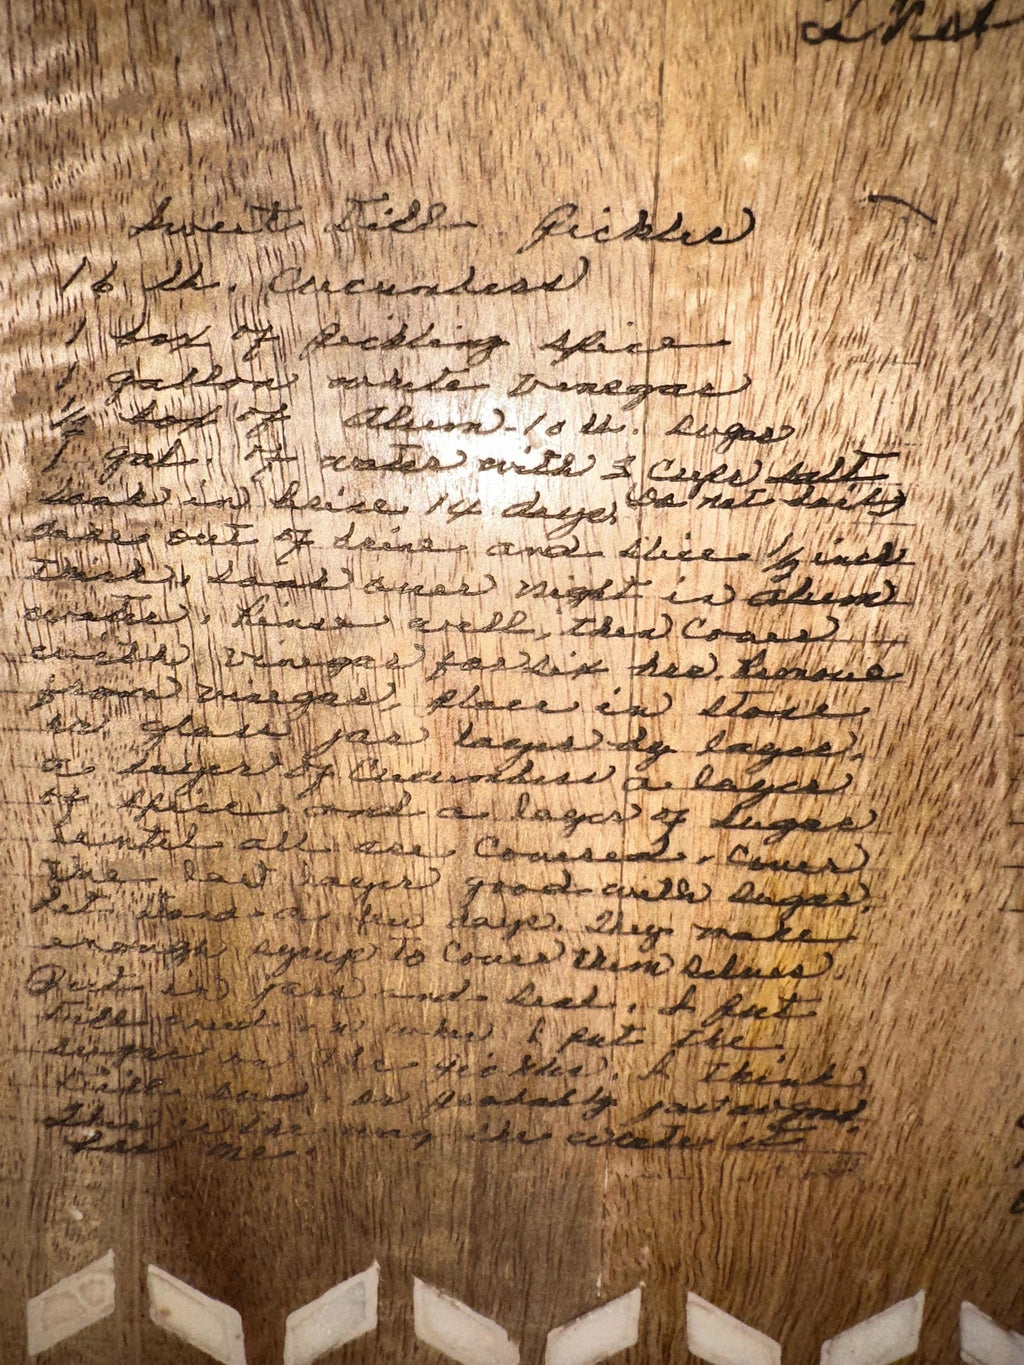 Sweet Dill Pickles
16 lb. Cucumbers
1 box of pickling spice
1 gallon white vinegar
1/2 box of Alum - 10 lb. sugar
1 gal. of water with 3 cups salt
soak in brine 14 days, (Do not boil)
Take out of brine and slice 1/2 inch
thick, soak over night in alum
water. Rinse well, then cover
with vinegar for six hrs. Remove
from vinegar, place in stone
or glass jar layer by layer,
a layer of cucumbers a layer
of spice and a layer of sugar
until all are covered. Cover
the last layer good with sugar.
Let stand a few days. They make
enough syrup to cover them selves
Put in jars and seal. I put
Dill in when I put the
sugar on the pickles. I think
Dill seed is probably just as good.
This is the way she wrote it
for me.